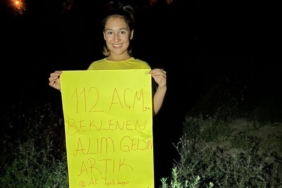 112 AÇM
BEKLENEN
ALIM GELSİN
ARTIK